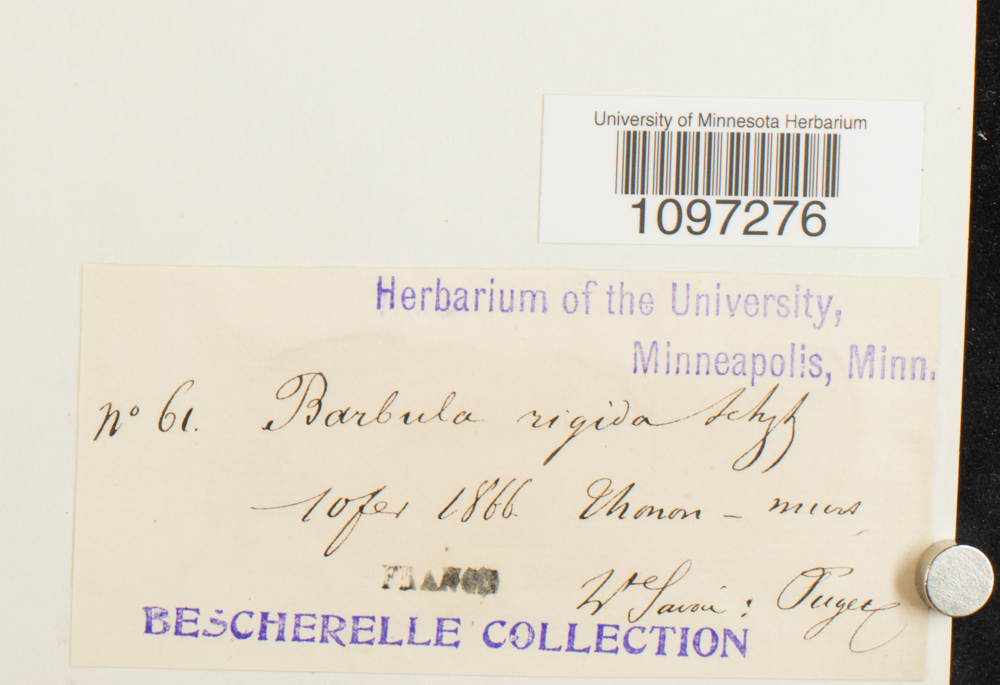 University of Minnesota Herbarium
1097276
Herbarium of the University,
Minneapolis, Minn.
nº 61. Barbula rigida Schz
10 fev 1866 Thonon - murs
FRANCE
Hte Savoie : Puget
BESCHERELLE COLLECTION